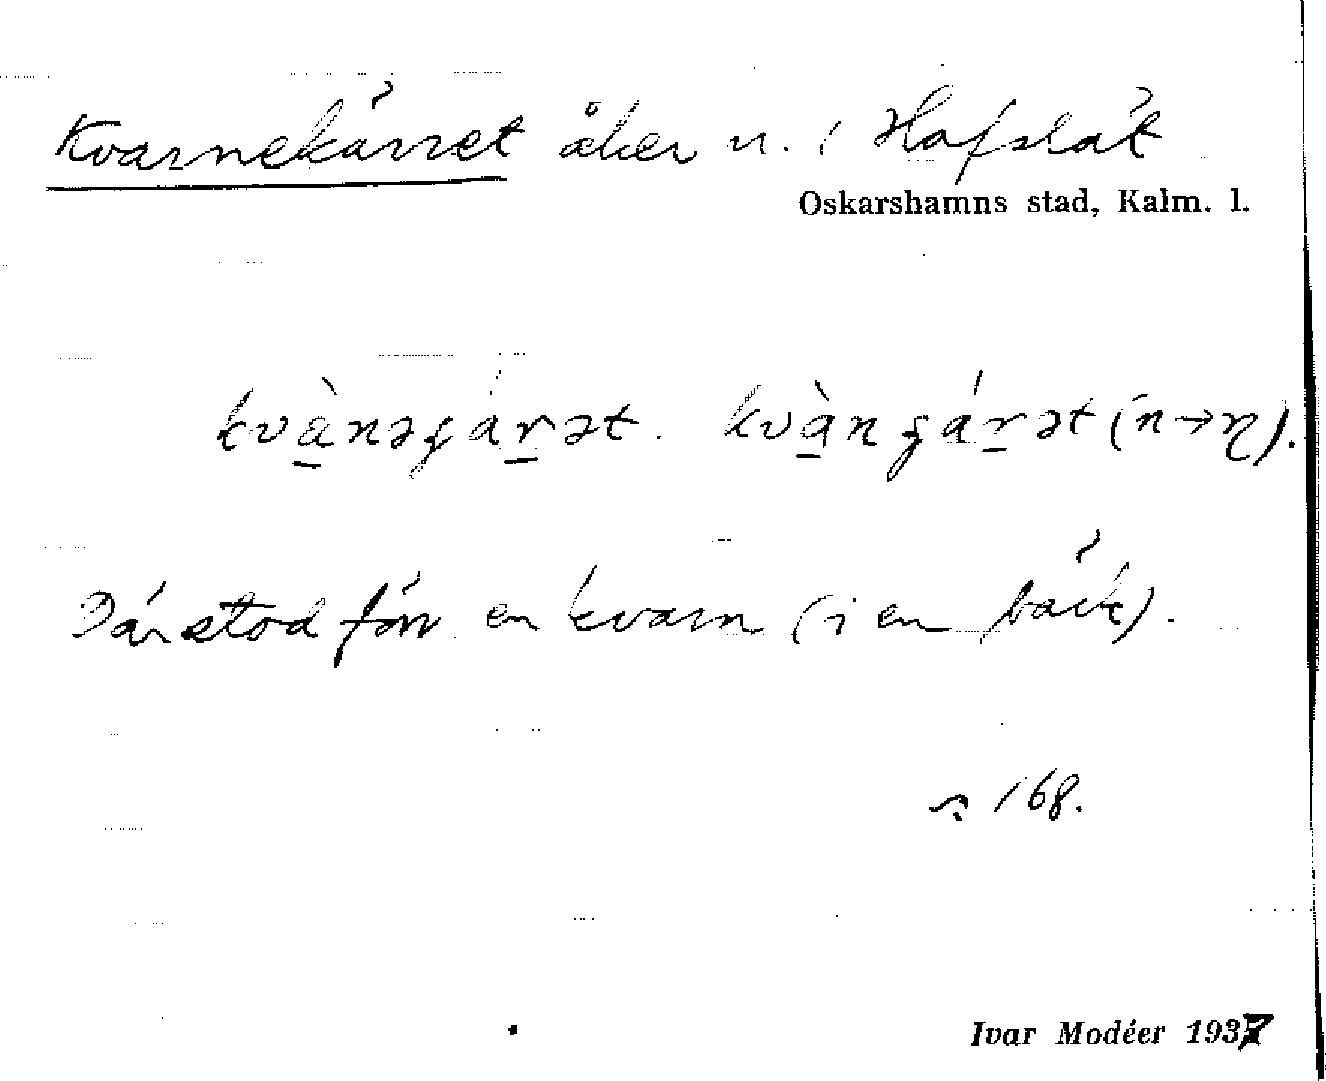 Kvarnekärret åker n. i Hafslät
Oskarshamns stad, Kalm. l.
kvànəgárət. kvàngárət (n→ŋ).
Där stod förr en kvarn (i en bäck).
s. 168.
Ivar Modéer 1937